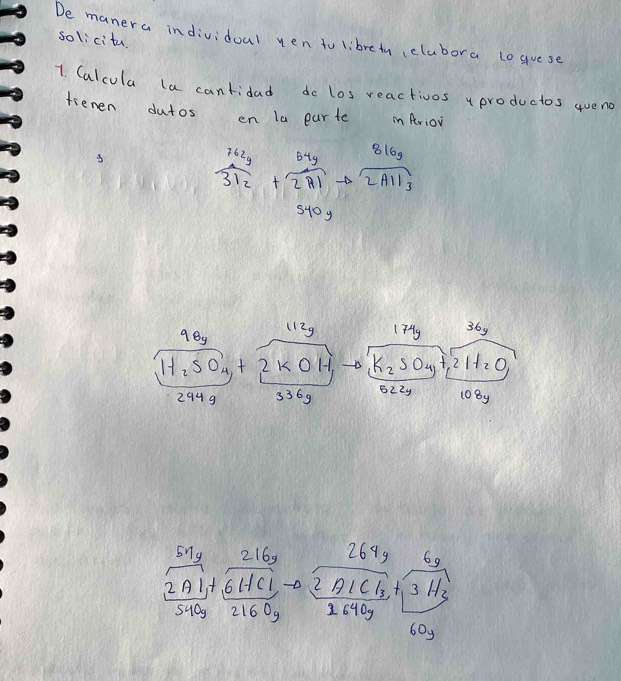 De manera individual y en tu libreta, elabora lo que se
solicita.
1. Calcula la cantidad de los reactivos y productos que no
tienen datos en la parte inferior
762g 54g 816g
3I2 + 2Al → 2AlI3
540g
98g 112g 174g 36g
H2SO4 + 2KOH → K2SO4 + 2H2O
294g 336g 522g 108g
54g 216g 264g 6g
2Al + 6HCl → 2AlCl3 + 3H2
540g 2160g 2640g
60g